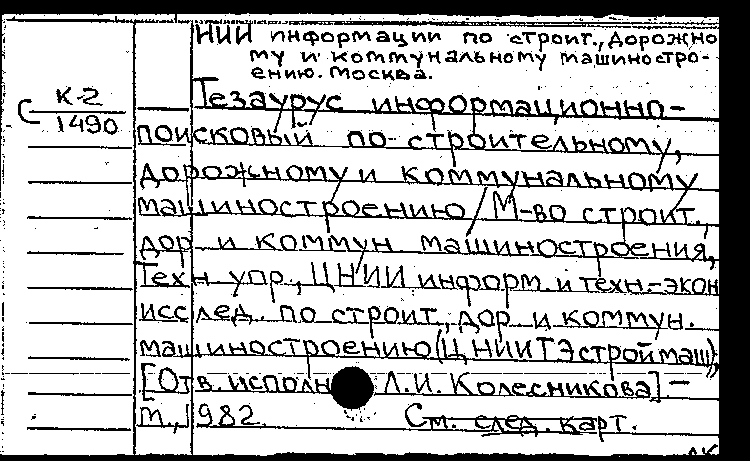 НИИ информации по строит., дорожно
му и коммунальному машиностро-
ению. Москва.
К-2
С
1490
Тезаурус информационно-
поисковый по строительному,
дорожному и коммунальному
машиностроению / М-во строит.,
дор. и коммун. машиностроения,
Техн. упр., ЦНИИ информ. и техн.-экон
исслед. по строит., дор. и коммун.
машиностроению (ЦНИИТЭстроймаш);
[Отв. исполн. Л.И. Колесникова] -
М., 1982.
См. след. карт.